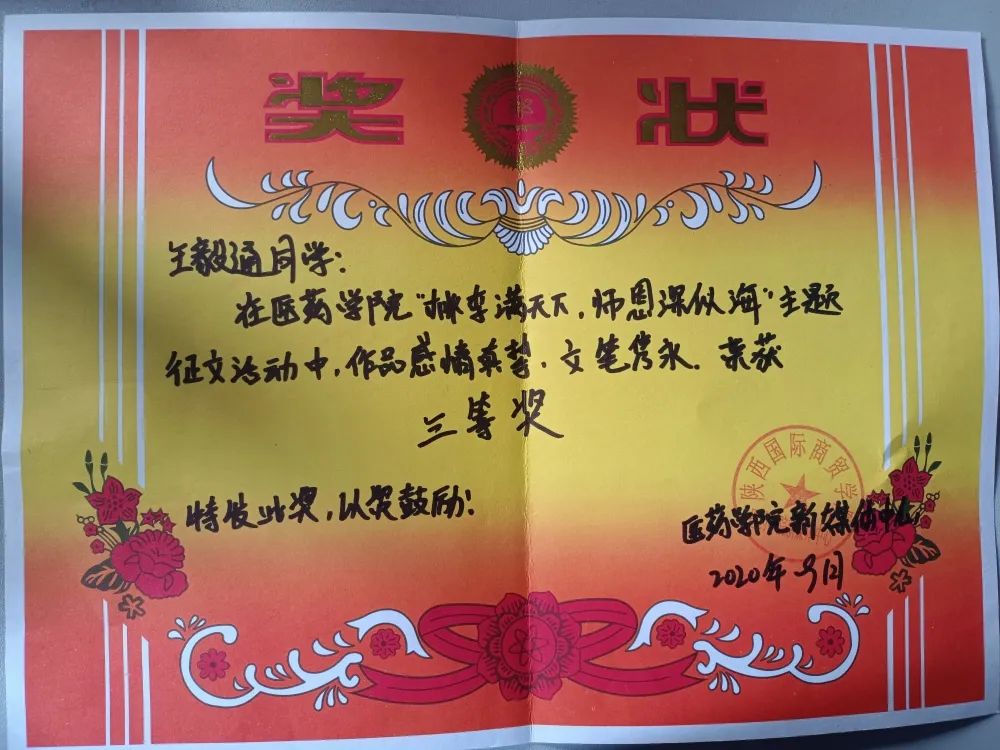 奖状
王毅通同学:
在医药学院"桃李满天下,师恩深似海"主题
征文活动中,作品感情真挚,文笔隽永.荣获
三等奖
特发此奖,以资鼓励:
陕西国际商贸学
医药学院新媒体中心
2020年9月